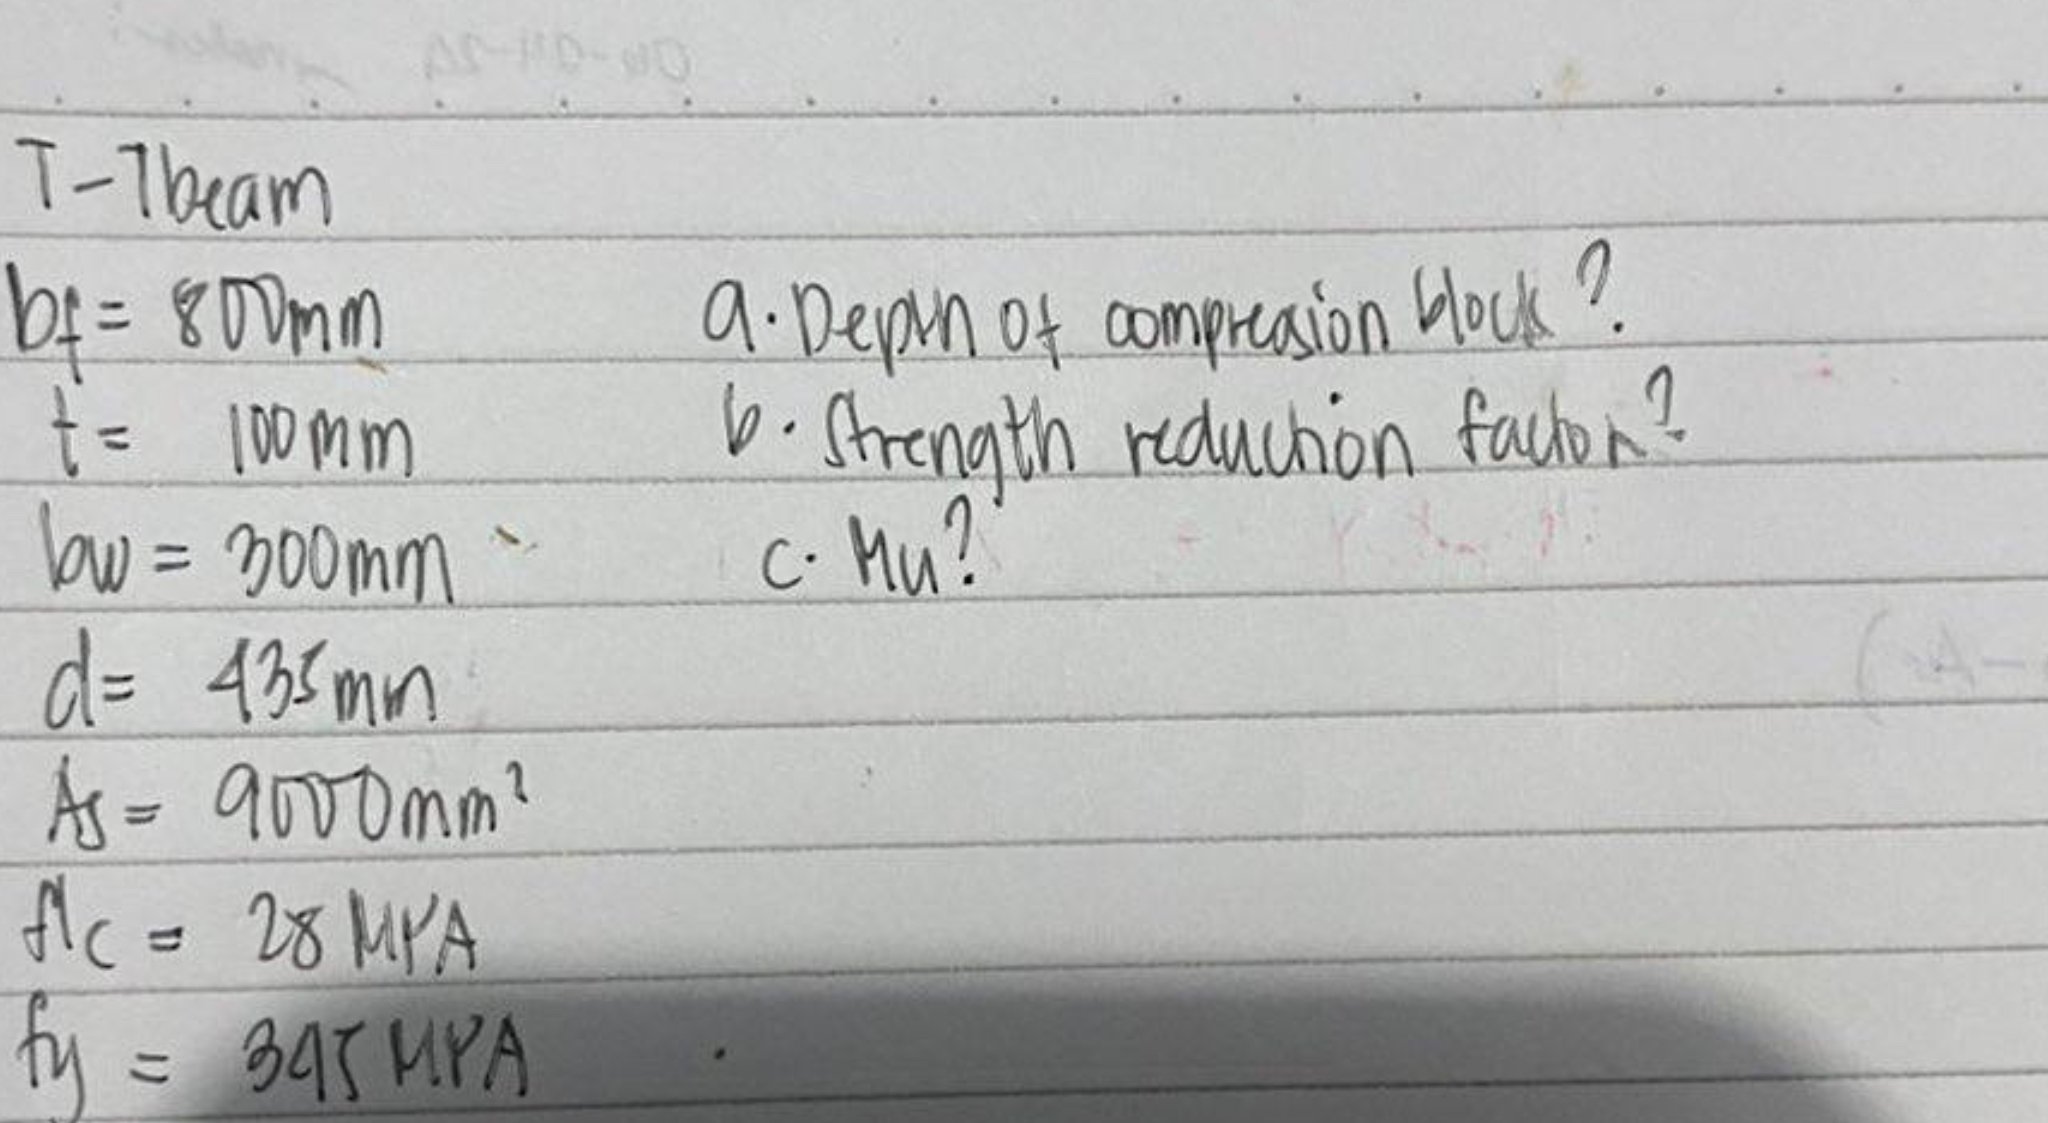 T-Tbeam
bf = 800mm a. Depth of compression block?
t = 100mm b. Strength reduction factor?
bw = 300mm c. Mu?
d = 435mm
As = 9000mm²
f'c = 28 MPA
fy = 345 MPA